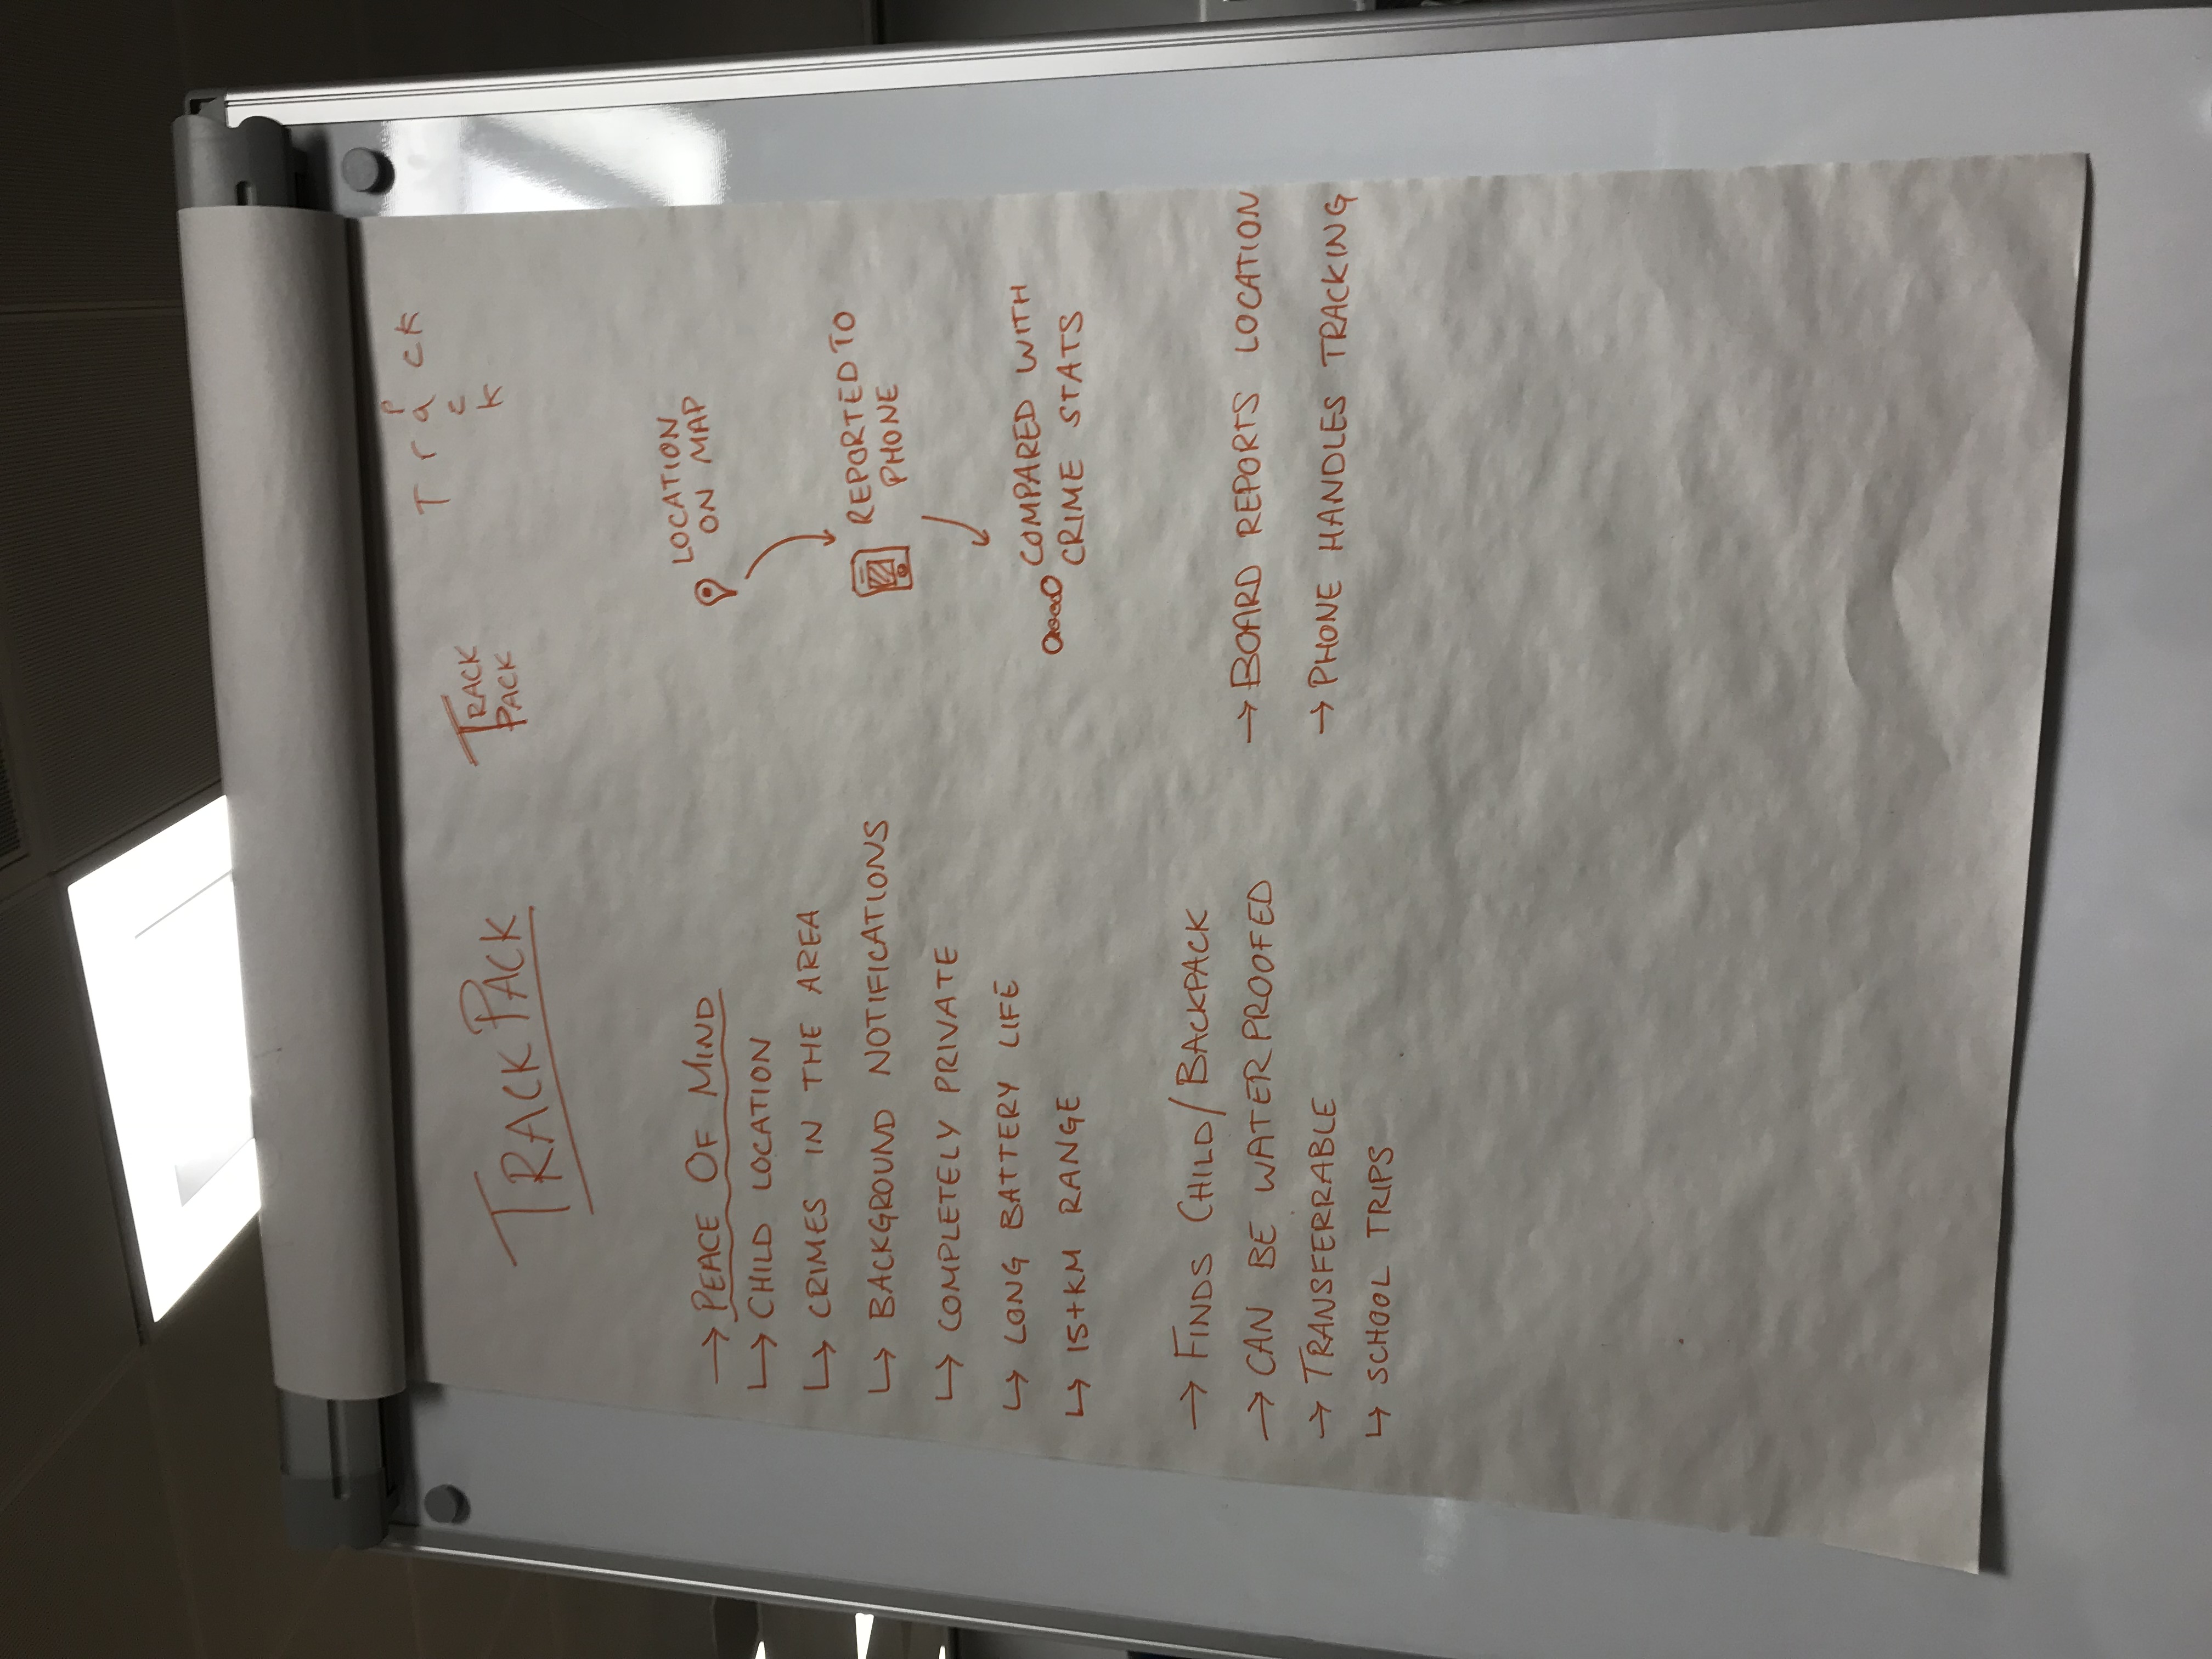 TRACK PACK
TRACK
PACK
P
Track
c
k
→ PEACE OF MIND
↳ CHILD LOCATION
↳ CRIMES IN THE AREA
↳ BACKGROUND NOTIFICATIONS
↳ COMPLETELY PRIVATE
↳ LONG BATTERY LIFE
↳ 15+KM RANGE
→ FINDS CHILD/BACKPACK
→ CAN BE WATERPROOFED
→ TRANSFERRABLE
↳ SCHOOL TRIPS
LOCATION
ON MAP
REPORTED TO
PHONE
COMPARED WITH
CRIME STATS
→ BOARD REPORTS LOCATION
→ PHONE HANDLES TRACKING